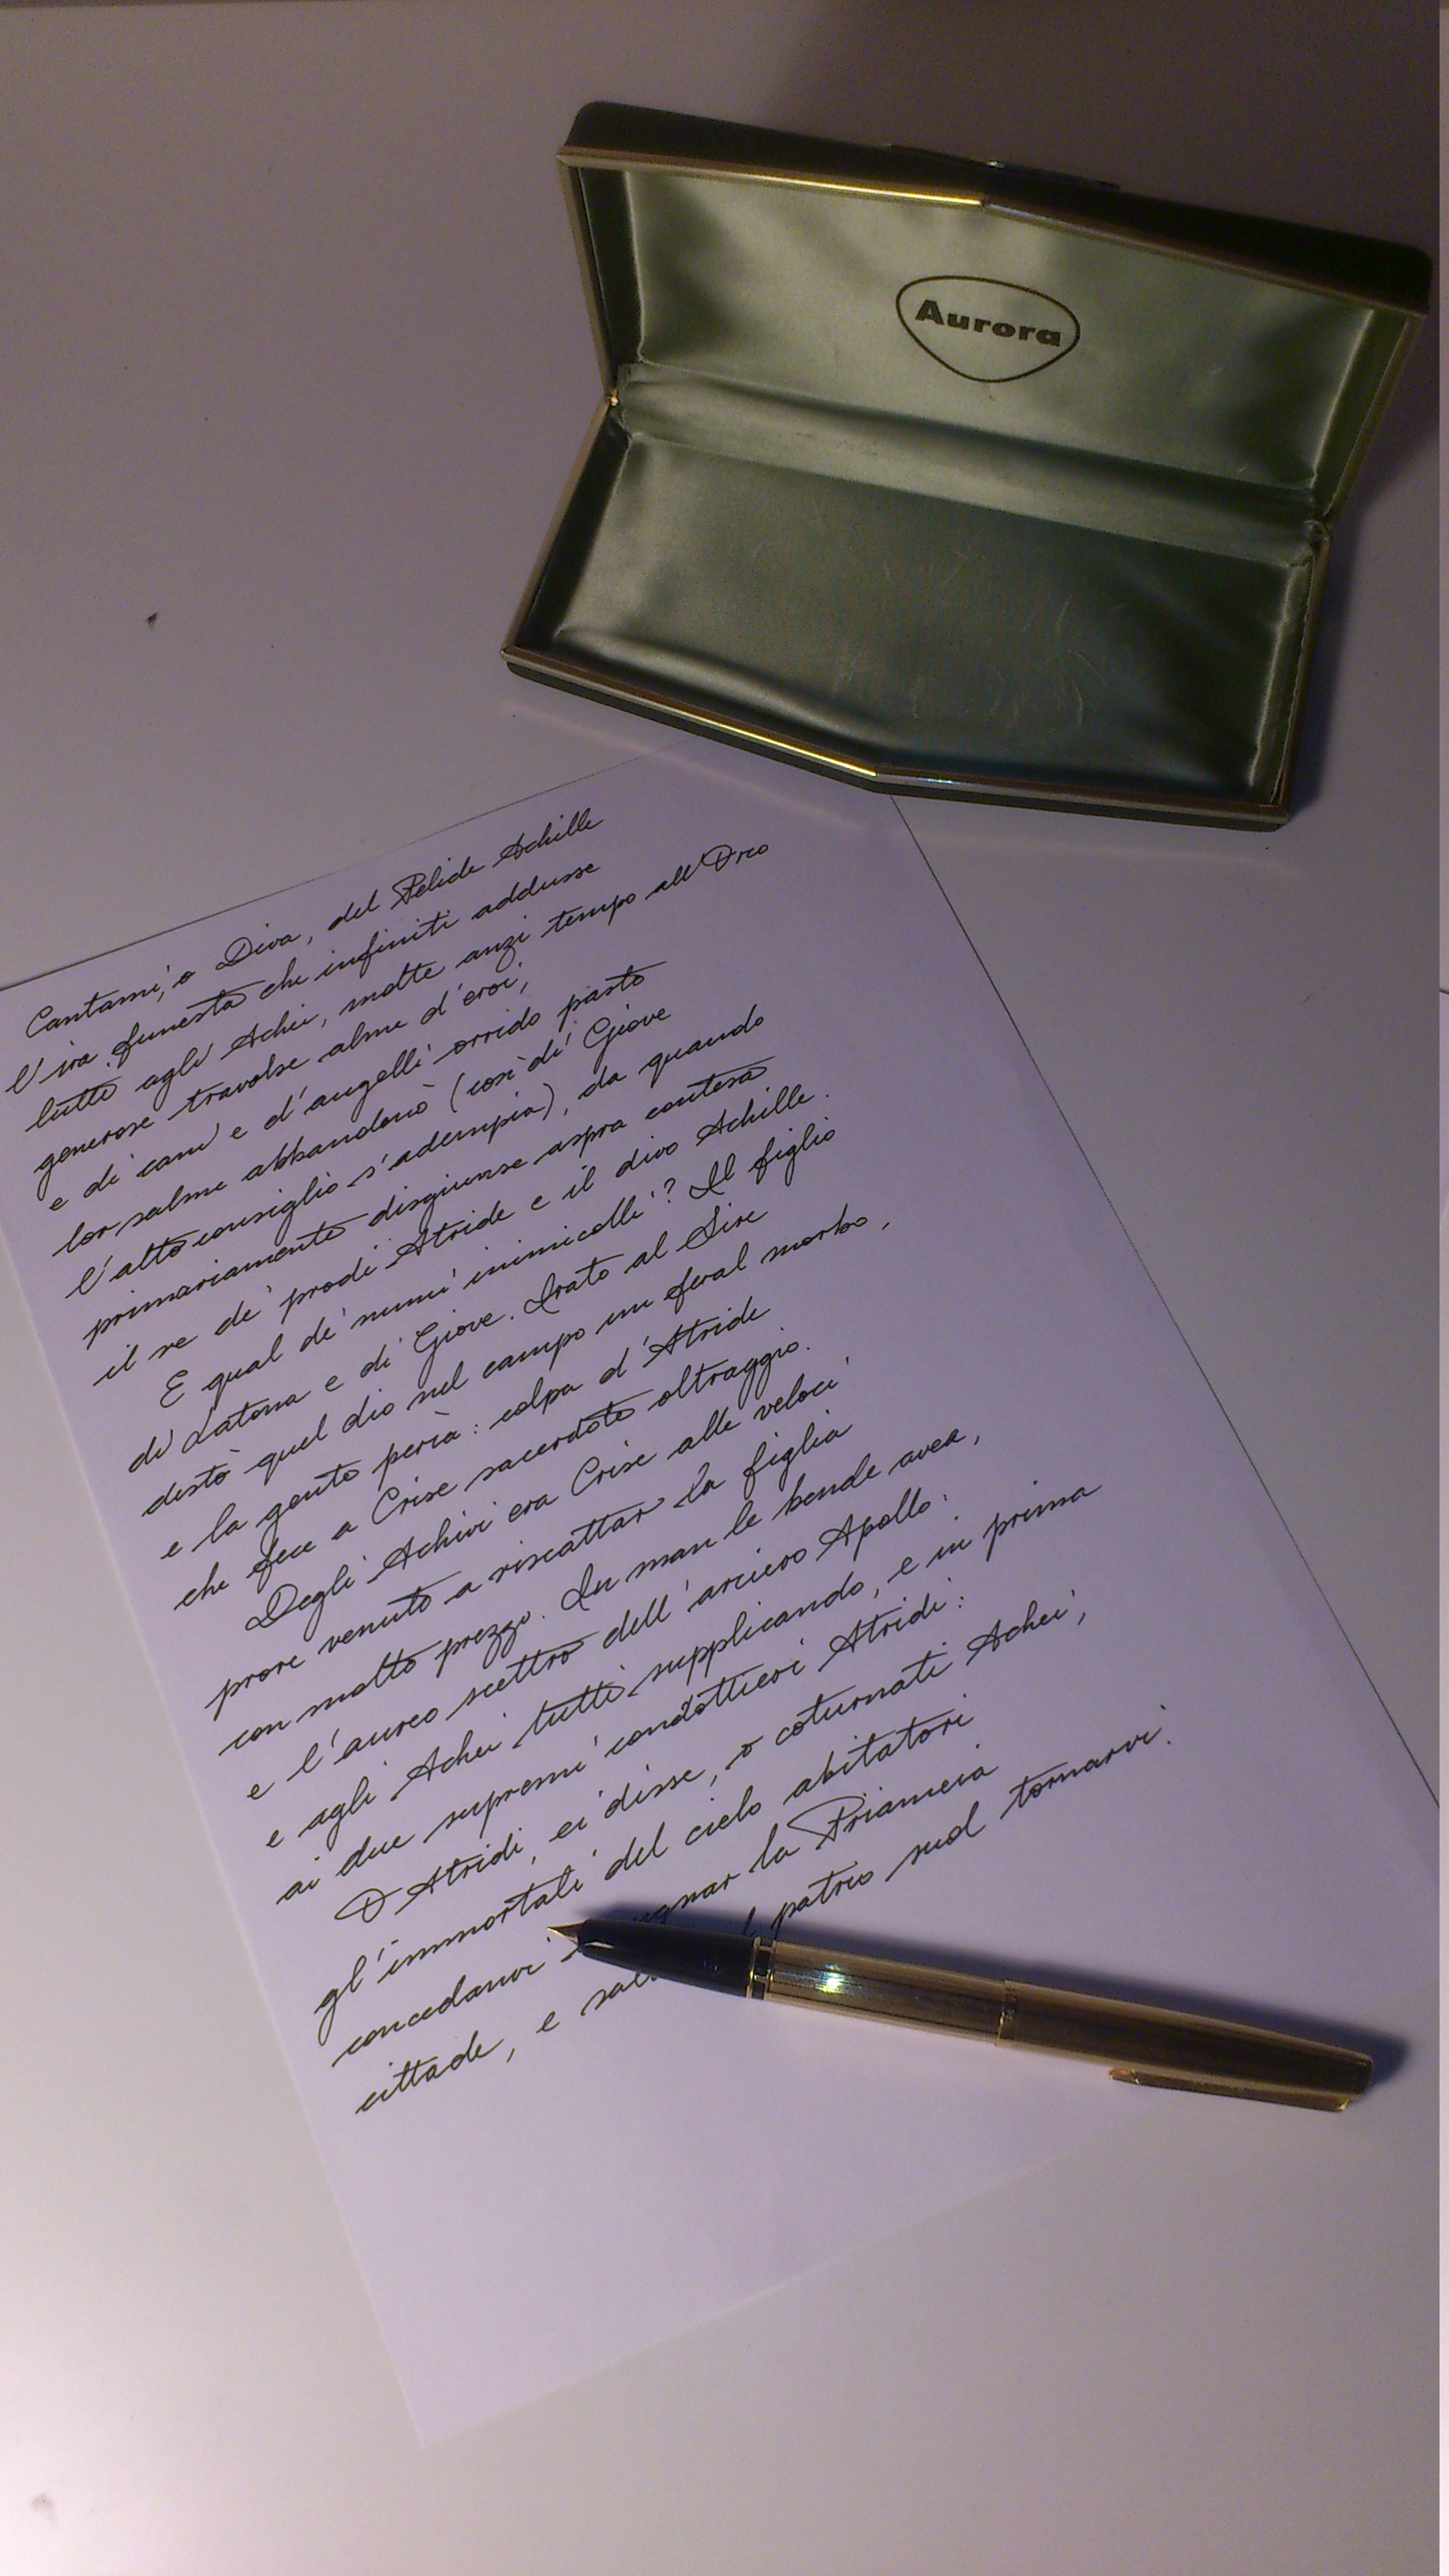 Aurora
Cantami, o Diva, del Pelide Achille
l'ira funesta che infiniti addusse
lutti agli Achei, molte anzi tempo all'Orco
generose travolse alme d'eroi,
e di cani e d'augelli orrido pasto
lor salme abbandonò (così di Giove
l'alto consiglio s'adempia), da quando
primariamente disgiunse aspra contesa
il re de' prodi Atride e il divo Achille.
E qual de' numi inimicolli? Il figlio
di Latona e di Giove. Irato al Sire
destò quel dio nel campo un feral morbo,
e la gente peria: colpa d'Atride
che fece a Crise sacerdote oltraggio.
Degli Achivi era Crise alle veloci
prore venuto a riscattar la figlia
con molto prezzo. In man le bende avea,
e l'aureo scettro dell'arciero Apollo:
e agli Achei tutti supplicando, e in prima
ai due supremi condottieri Atridi:
O Atridi, ei disse, o coturnati Achei,
gl'immortali del cielo abitatori
concedanvi la Priameia
cittade, e patrio suol tornarvi.